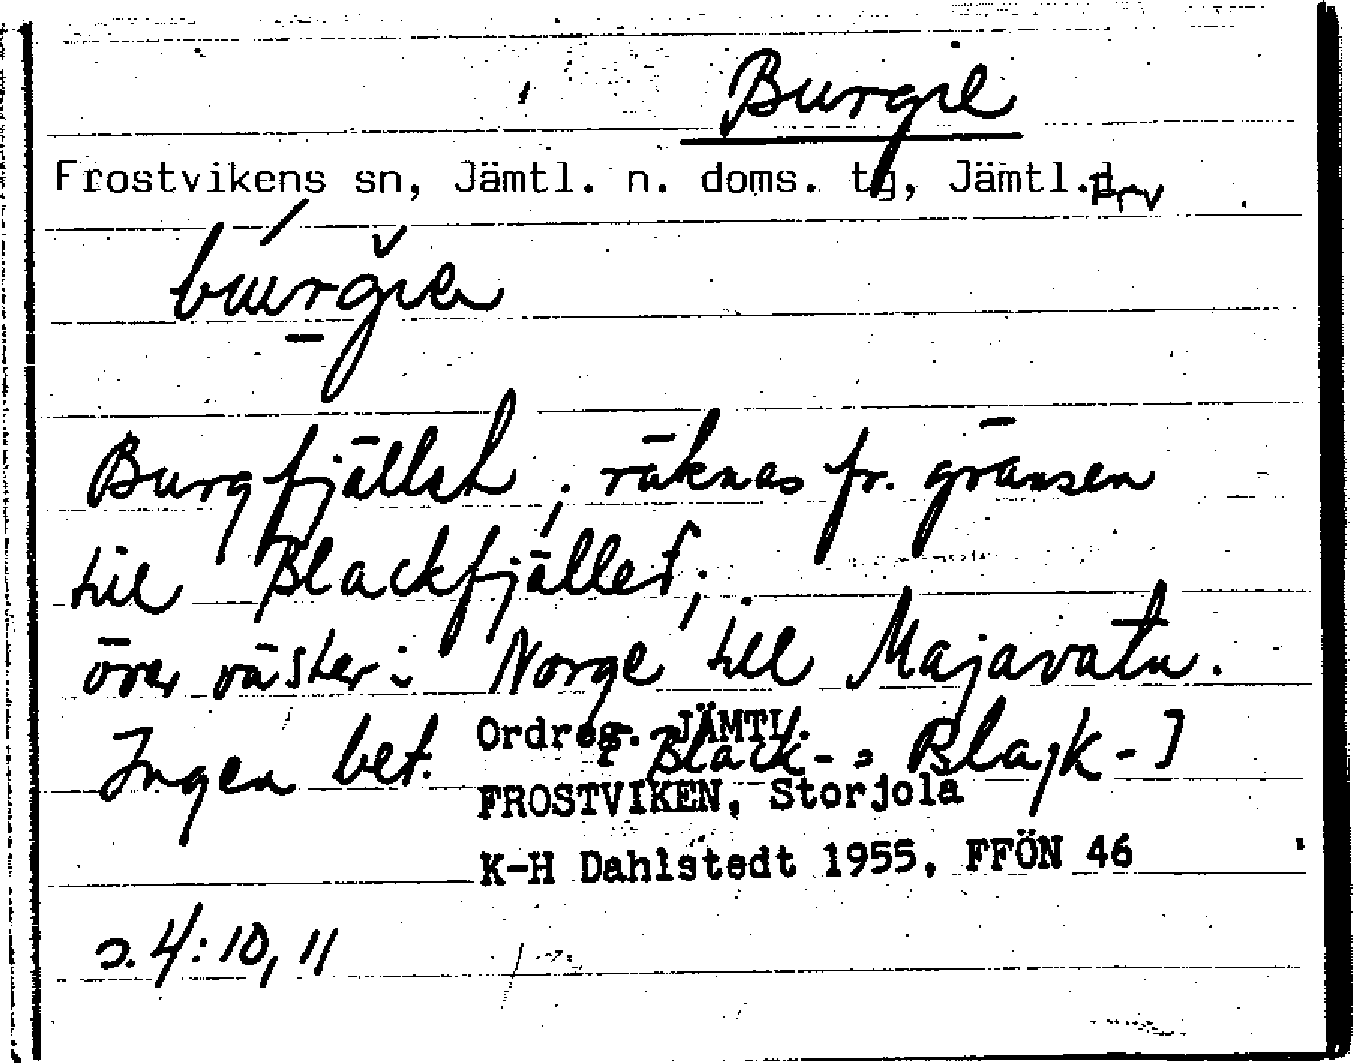 Burgie
Frostvikens sn, Jämtl. n. doms. tg, Jämtl.
Frv
Burgfjället, räknas fr. gränsen
till Blackfjället;
över väster i Norge till Majavatn.
Ingen bet. [Black- = Blajk-]
Ordreg. JÄMTL.
FROSTVIKEN, Storjola
K-H Dahlstedt 1955, FFÖN 46
s. 4:10, 11